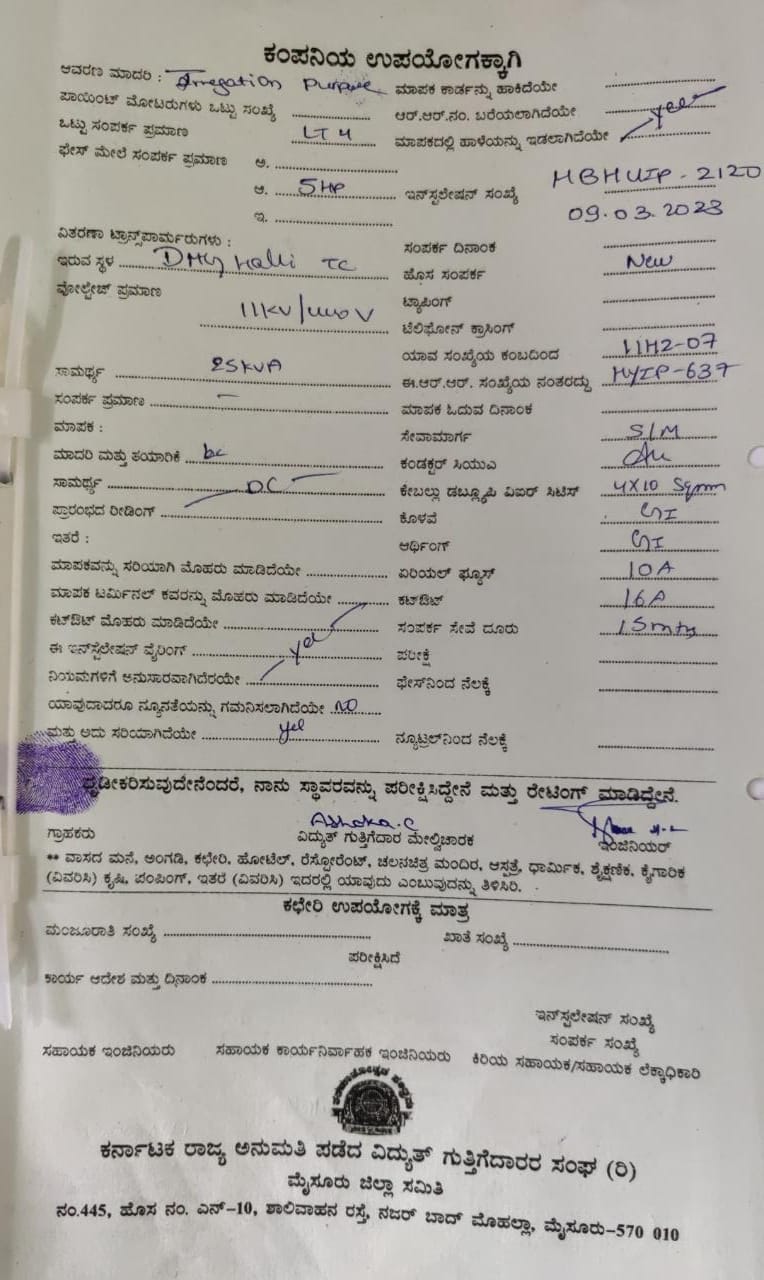 ಕಂಪನಿಯ ಉಪಯೋಗಕ್ಕಾಗಿ
ಆವರಣ ಮಾದರಿ : Irregation Purpose ಮಾಪಕ ಕಾರ್ಡನ್ನು ಹಾಕಿದೆಯೇ
ಪಾಯಿಂಟ್ ಮೋಟರುಗಳು ಒಟ್ಟು ಸಂಖ್ಯೆ ಆರ್.ಆರ್.ನಂ. ಬರೆಯಲಾಗಿದೆಯೇ yes
ಒಟ್ಟು ಸಂಪರ್ಕ ಪ್ರಮಾಣ LT 4 ಮಾಪಕದಲ್ಲಿ ಹಾಳೆಯನ್ನು ಇಡಲಾಗಿದೆಯೇ
ಫೇಸ್ ಮೇಲೆ ಸಂಪರ್ಕ ಪ್ರಮಾಣ ಅ.
ಆ. 5HP ಇನ್‌ಸ್ಟಲೇಷನ್ ಸಂಖ್ಯೆ HBHUIP-2120
ಇ. 09.03.2023
ವಿತರಣಾ ಟ್ರಾನ್ಸ್‌ಪಾರ್ಮರುಗಳು : ಸಂಪರ್ಕ ದಿನಾಂಕ
ಇರುವ ಸ್ಥಳ Halli TC ಹೊಸ ಸಂಪರ್ಕ New
ವೋಲ್ಟೇಜ್ ಪ್ರಮಾಣ 11KV/ V ಟ್ಯಾಪಿಂಗ್
ಟೆಲಿಫೋನ್ ಕ್ರಾಸಿಂಗ್
ಯಾವ ಸಂಖ್ಯೆಯ ಕಂಬದಿಂದ 11H2-07
ಸಾಮರ್ಥ್ಯ 25KVA ಈ.ಆರ್.ಆರ್. ಸಂಖ್ಯೆಯ ನಂತರದ್ದು HYIP-637
ಸಂಪರ್ಕ ಪ್ರಮಾಣ - ಮಾಪಕ ಓದುವ ದಿನಾಂಕ
ಮಾಪಕ : ಸೇವಾಮಾರ್ಗ S/M
ಮಾದರಿ ಮತ್ತು ತಯಾರಿಕೆ ಕಂಡಕ್ಟರ್ ಸಿಯುಎ
ಸಾಮರ್ಥ್ಯ DC ಕೇಬಲ್ಲು ಡಬ್ಲ್ಯೂಪಿ ವಿಐಆರ್ ಸಿಟಿಸ್ 4X10 Sqmm
ಪ್ರಾರಂಭದ ರೀಡಿಂಗ್ ಕೊಳವೆ GI
ಇತರೆ : ಆರ್ಥಿಂಗ್ GI
ಮಾಪಕವನ್ನು ಸರಿಯಾಗಿ ಮೊಹರು ಮಾಡಿದೆಯೇ ಏರಿಯಲ್ ಫ್ಯೂಸ್ 10A
ಮಾಪಕ ಟರ್ಮಿನಲ್ ಕವರನ್ನು ಮೊಹರು ಮಾಡಿದೆಯೇ ಕಟ್‌ಔಟ್ 16A
ಕಟ್‌ಔಟ್ ಮೊಹರು ಮಾಡಿದೆಯೇ ಸಂಪರ್ಕ ಸೇವೆ ದೂರು 15mtrs
ಈ ಇನ್‌ಸ್ಟಲೇಷನ್ ವೈರಿಂಗ್ yes ಪರೀಕ್ಷೆ
ನಿಯಮಗಳಿಗೆ ಅನುಸಾರವಾಗಿದೆರಯೇ ಫೇಸ್‌ನಿಂದ ನೆಲಕ್ಕೆ
ಯಾವುದಾದರೂ ನ್ಯೂನತೆಯನ್ನು ಗಮನಿಸಲಾಗಿದೆಯೇ NO
ಮತ್ತು ಅದು ಸರಿಯಾಗಿದೆಯೇ yes ನ್ಯೂಟ್ರಲ್‌ನಿಂದ ನೆಲಕ್ಕೆ
ದೃಢೀಕರಿಸುವುದೇನೆಂದರೆ, ನಾನು ಸ್ಥಾವರವನ್ನು ಪರೀಕ್ಷಿಸಿದ್ದೇನೆ ಮತ್ತು ರೇಟಿಂಗ್ ಮಾಡಿದ್ದೇನೆ.
Ashoka.C
ಗ್ರಾಹಕರು ವಿದ್ಯುತ್ ಗುತ್ತಿಗೆದಾರ ಮೇಲ್ವಿಚಾರಕ ಇಂಜಿನಿಯರ್
** ವಾಸದ ಮನೆ, ಅಂಗಡಿ, ಕಛೇರಿ, ಹೋಟೆಲ್, ರೆಸ್ಟೋರೆಂಟ್, ಚಲನಚಿತ್ರ ಮಂದಿರ, ಆಸ್ಪತ್ರೆ, ಧಾರ್ಮಿಕ, ಶೈಕ್ಷಣಿಕ, ಕೈಗಾರಿಕ
(ವಿವರಿಸಿ) ಕೃಷಿ, ಪಂಪಿಂಗ್, ಇತರೆ (ವಿವರಿಸಿ) ಇದರಲ್ಲಿ ಯಾವುದು ಎಂಬುವುದನ್ನು ತಿಳಿಸಿರಿ.
ಕಛೇರಿ ಉಪಯೋಗಕ್ಕೆ ಮಾತ್ರ
ಮಂಜೂರಾತಿ ಸಂಖ್ಯೆ ಖಾತೆ ಸಂಖ್ಯೆ
ಪರೀಕ್ಷಿಸಿದೆ
ಕಾರ್ಯ ಆದೇಶ ಮತ್ತು ದಿನಾಂಕ
ಇನ್‌ಸ್ಟಲೇಷನ್ ಸಂಖ್ಯೆ
ಸಂಪರ್ಕ ಸಂಖ್ಯೆ
ಸಹಾಯಕ ಇಂಜಿನಿಯರು ಸಹಾಯಕ ಕಾರ್ಯನಿರ್ವಾಹಕ ಇಂಜಿನಿಯರು ಕಿರಿಯ ಸಹಾಯಕ/ಸಹಾಯಕ ಲೆಕ್ಕಾಧಿಕಾರಿ
ಕರ್ನಾಟಕ ರಾಜ್ಯ ಅನುಮತಿ ಪಡೆದ ವಿದ್ಯುತ್ ಗುತ್ತಿಗೆದಾರರ ಸಂಘ (ರಿ)
ಮೈಸೂರು ಜಿಲ್ಲಾ ಸಮಿತಿ
ನಂ.445, ಹೊಸ ನಂ. ಎನ್-10, ಶಾಲಿವಾಹನ ರಸ್ತೆ, ನಜರ್ ಬಾದ್ ಮೊಹಲ್ಲಾ, ಮೈಸೂರು-570 010